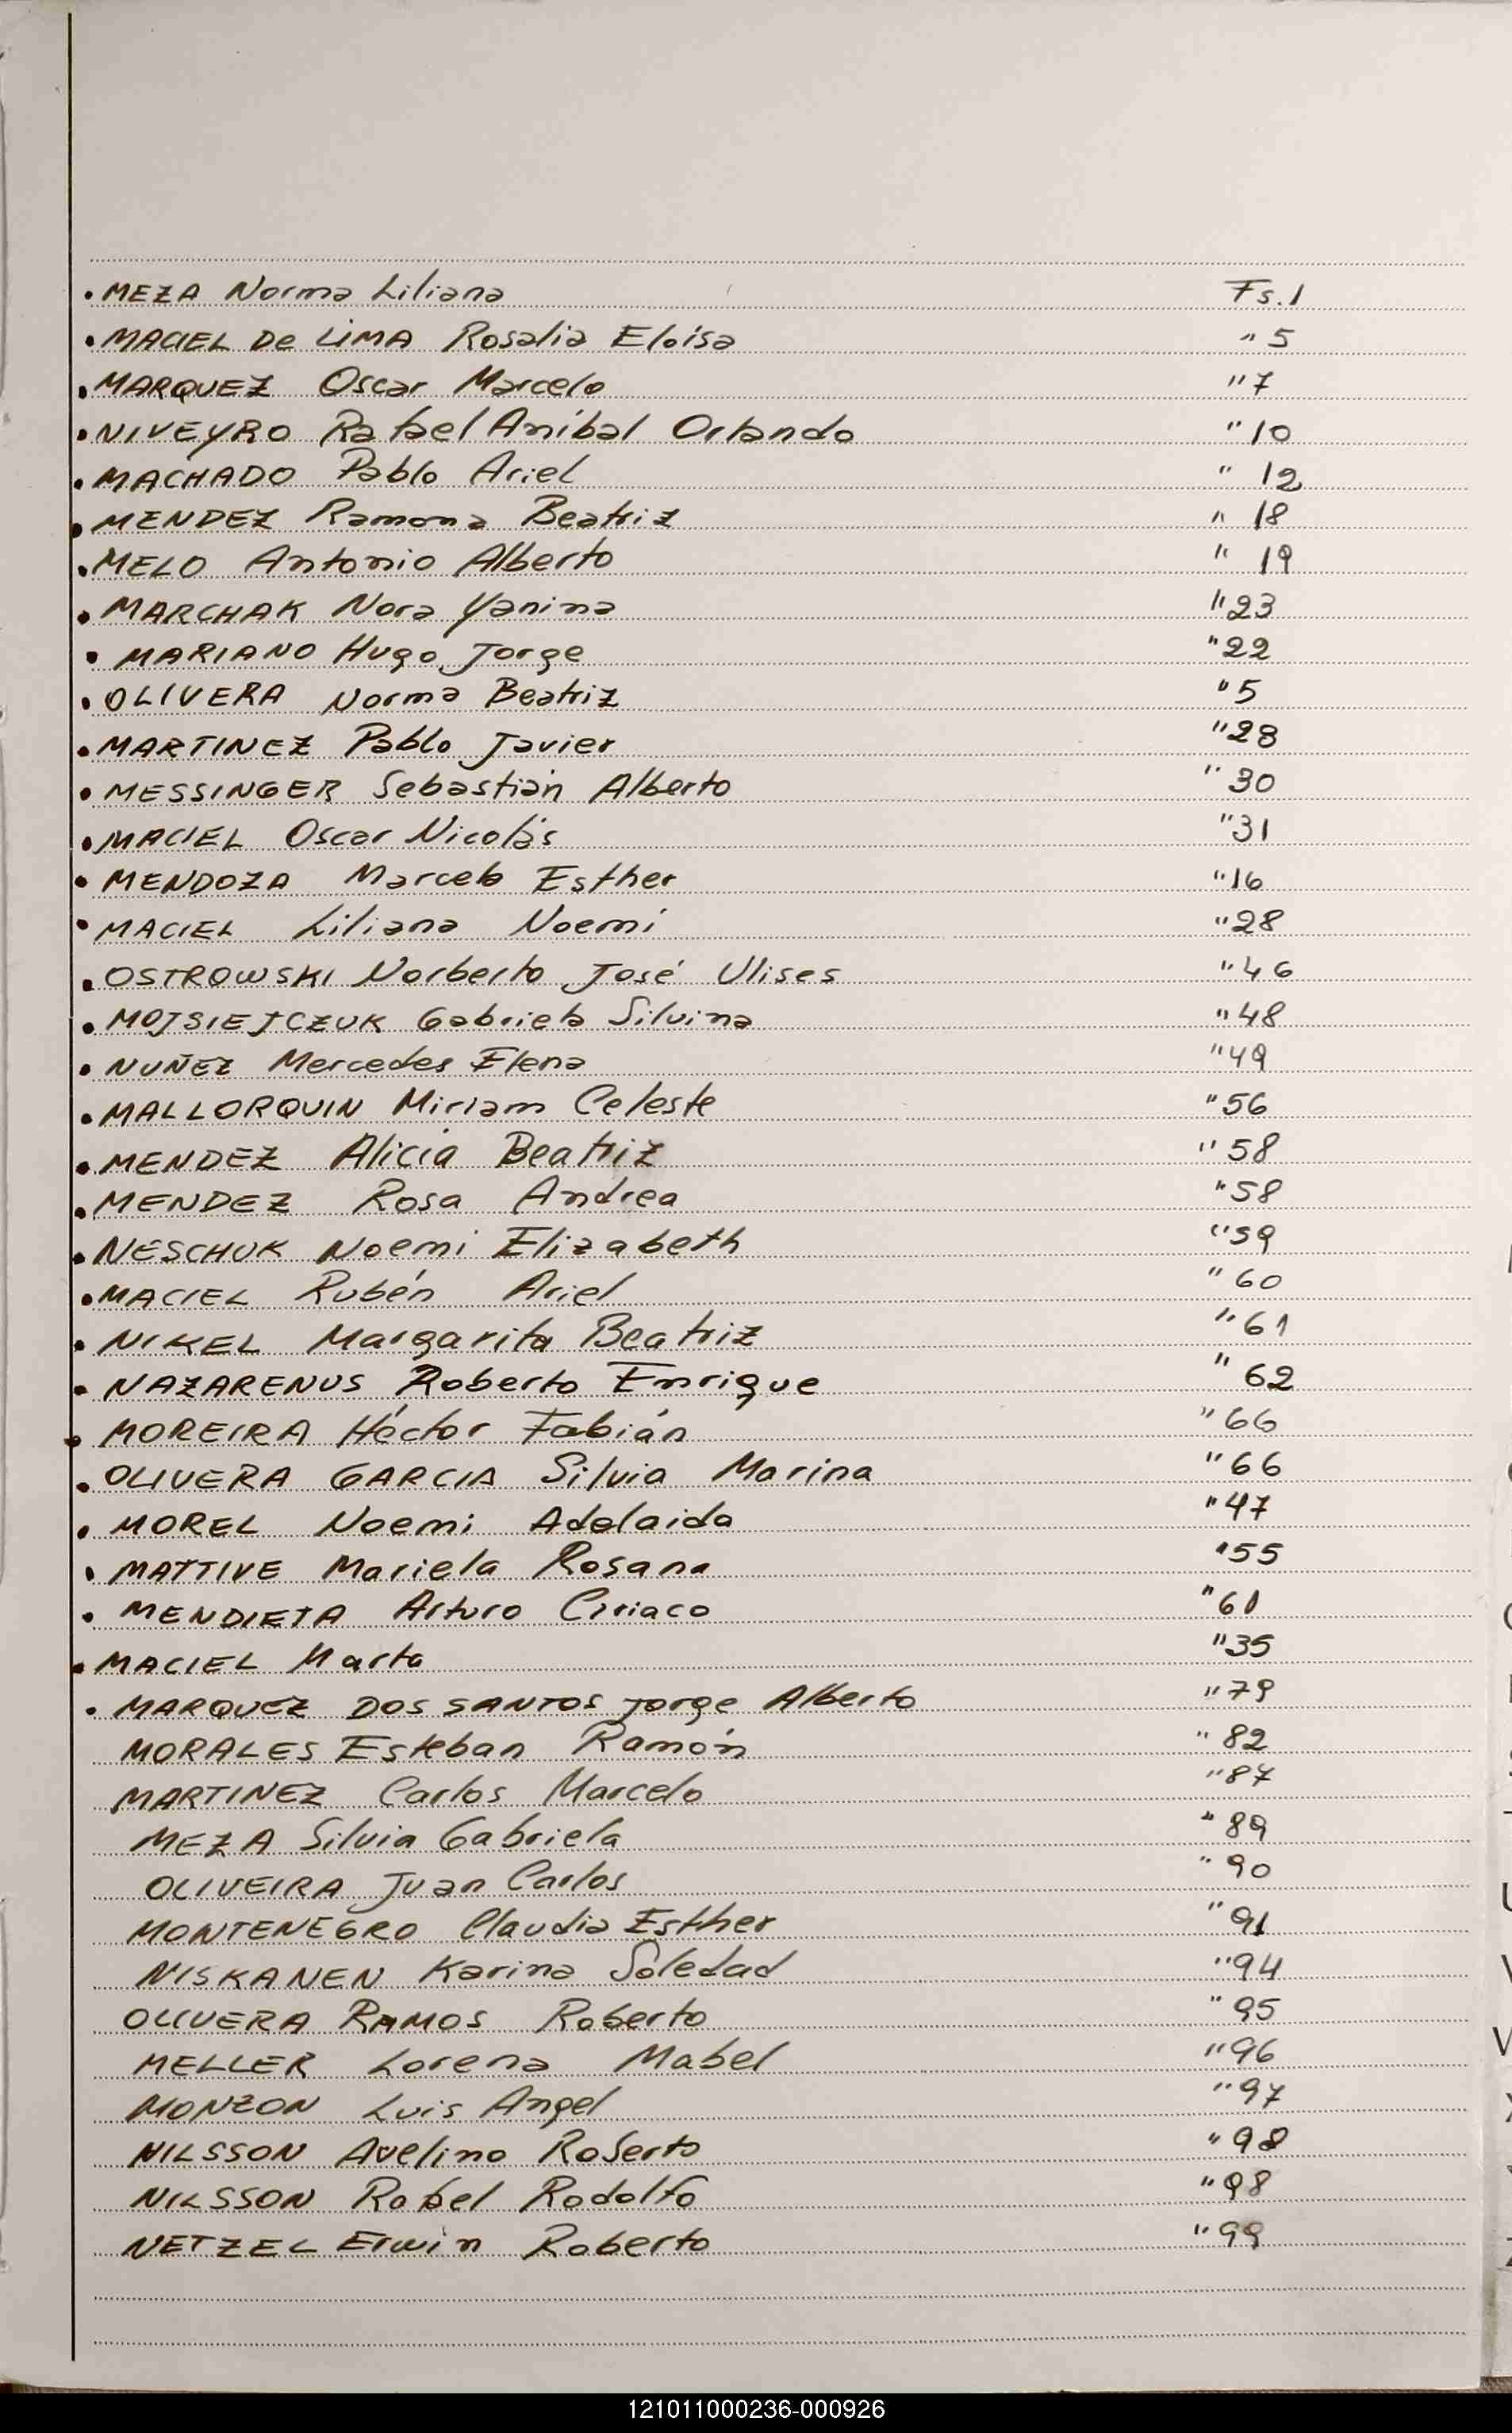 • MEZA Norma Liliana Fs. 1
• MACIEL De LIMA Rosalia Eloísa " 5
• MARQUEZ Oscar Marcelo " 7
• NIVEYRO Rafael Aníbal Orlando " 10
• MACHADO Pablo Ariel " 12
• MENDEZ Ramona Beatriz " 18
• MELO Antonio Alberto " 19
• MARCHAK Nora Yanina " 23
• MARIANO Hugo Jorge " 22
• OLIVERA Norma Beatriz " 5
• MARTINEZ Pablo Javier " 28
• MESSINGER Sebastián Alberto " 30
• MACIEL Oscar Nicolás " 31
• MENDOZA Marcela Esther " 16
• MACIEL Liliana Noemí " 28
• OSTROWSKI Norberto José Ulises " 46
• MOJSIEJCZUK Gabriela Silvina " 48
• NUÑEZ Mercedes Elena " 49
• MALLORQUIN Miriam Celeste " 56
• MENDEZ Alicia Beatriz " 58
• MENDEZ Rosa Andrea " 58
• NESCHUK Noemi Elizabeth " 59
• MACIEL Rubén Ariel " 60
• NIKEL Margarita Beatriz " 61
• NAZARENUS Roberto Enrique " 62
• MOREIRA Héctor Fabián " 66
• OLIVERA GARCIA Silvia Marina " 66
• MOREL Noemi Adelaida " 47
• MATTIVE Mariela Rosana " 55
• MENDIETA Arturo Ciriaco " 61
• MACIEL Marta " 35
• MARQUEZ DOS SANTOS Jorge Alberto " 79
MORALES Esteban Ramón " 82
MARTINEZ Carlos Marcelo " 87
MEZA Silvia Gabriela " 89
OLIVEIRA Juan Carlos " 90
MONTENEGRO Claudia Esther " 91
NISKANEN Karina Soledad " 94
OLIVERA RAMOS Roberto " 95
MELLER Lorena Mabel " 96
MONZON Luis Angel " 97
NILSSON Avelino Roberto " 98
NILSSON Rafael Rodolfo " 98
NETZEL Erwin Roberto " 99
121011000236-000926